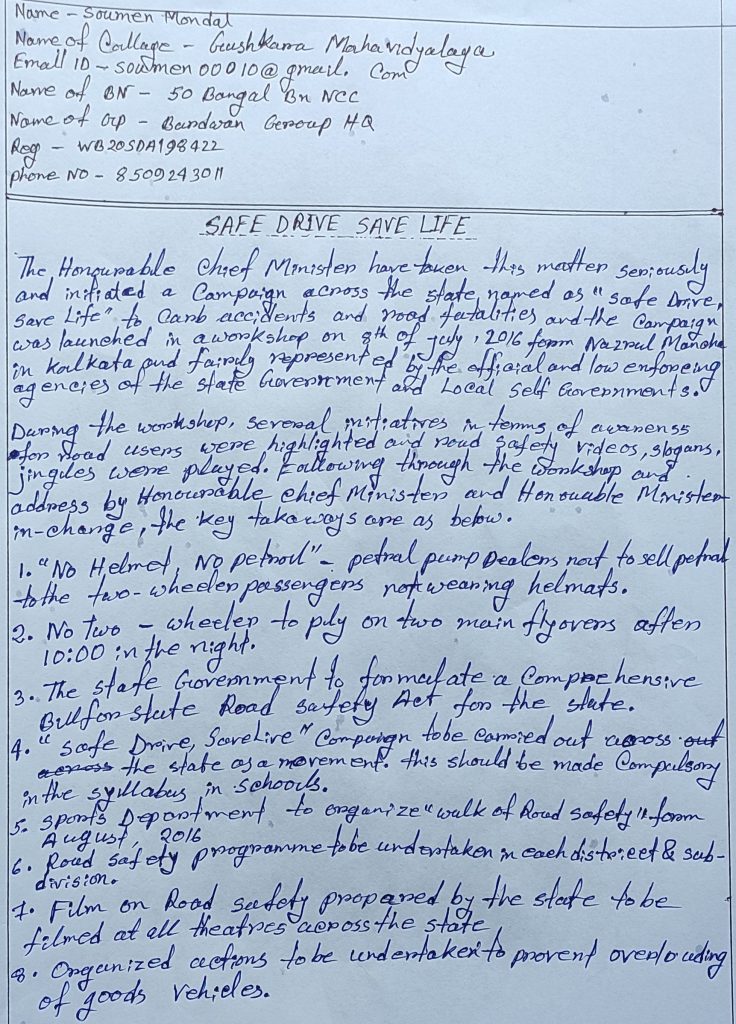 Name - Soumen Mondal
Name of Collage - Gushkara Mahavidyalaya
Emall ID - soumen00010@gmail.com
Name of BN - 50 Bangal Bn NCC
Name of Grp - Bardwan Geroup HQ
Reg - WB20SDA198422
phone NO - 8509243011
SAFE DRIVE SAVE LIFE
The Honourable Chief Minister have taken this matter seriously
and initiated a Campaign across the state, named as "safe Drive,
save Life" to Carb accidents and road fatalities and the Campaign
was launched in a workshop on 8th of july, 2016 form Nazrul Mancha
in kolkata and fairdy represented by the official and low enforeing
agencies of the state Government and Local Self Governments.
During the workshop, several initiatives in terms of awarenss
for road users were highlighted and road safety videos, slogans,
jingles were played. Following through the workshop and
address by Honourable chief Minister and Honouable Minister
in-change, the key takaways are as below.
1. "No Helmet, No petroll" - petral pump Dealers not to sell petral
to the two-wheeler passengers not wearing helmats.
2. No Two - wheeler to ply on two main flyovers after
10:00 in the night.
3. The state Government to formulate a Comprehensive
Bill for state Road safety Act for the state.
4. "safe Drive, Save Live" Compaign to be carried out across out
across the state as a movement. this should be made Compulsory
in the syllabus in schools.
5. sports Department to organize "walk of Road safety" form
August, 2016
6. Road safety programme to be undertaken in each district & sub-
division.
7. Film on Road safety prepared by the state to be
filmed at all theatres across the state
8. Organized actions to be undertaken to provent overloading
of goods vehicles.